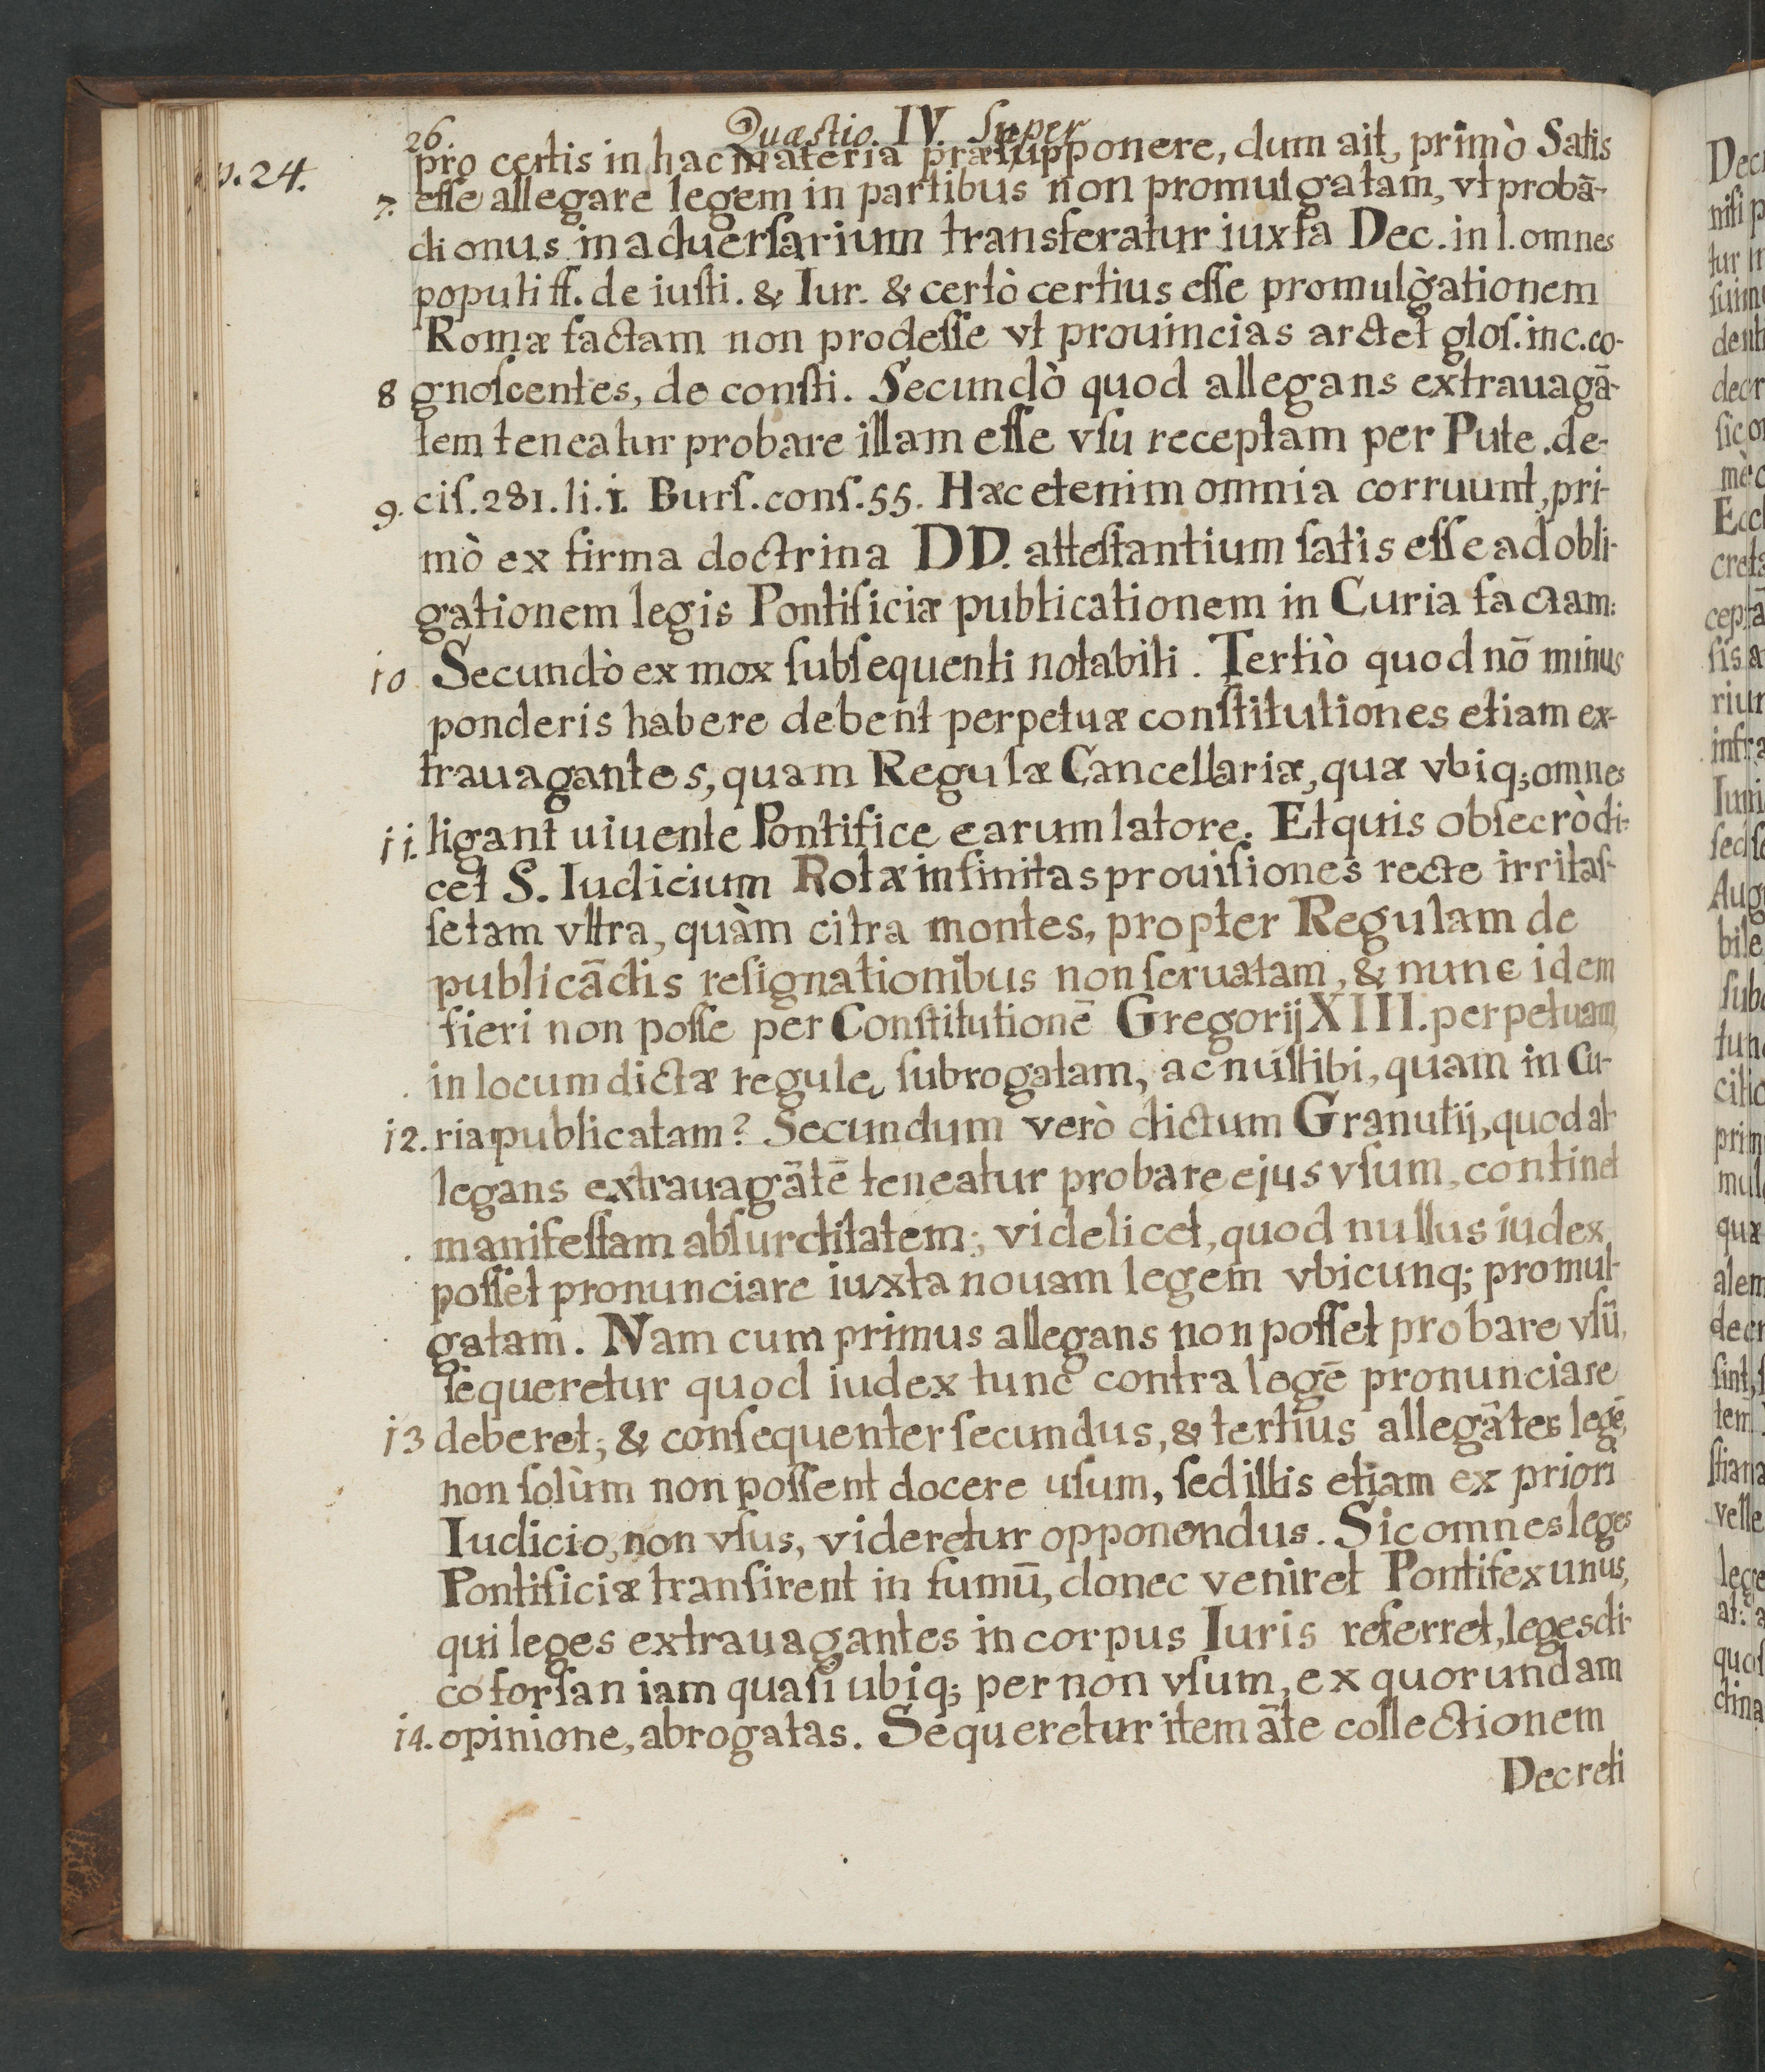 26. Quæstio. IV. Super
p. 24.
pro certis in hac materia præsupponere, dum ait, primò Satis
7. esse allegare legem in partibus non promulgatam, vt probā-
di onus in aduersarium transferatur iuxta Dec. in l. omnes
populi ff. de iusti. & Iur. & certò certius esse promulgationem
Romæ factam non prodesse vt prouincias arctet glos. in c. co-
8 gnoscentes, de consti. Secundò quod allegans extrauagā-
tem teneatur probare illam esse vsu receptam per Pute. de-
9. cis. 281. li. i. Burs. cons. 55. Hæc etenim omnia corruunt, pri-
mò ex firma doctrina DD. attestantium satis esse ad obli-
gationem legis Pontificiæ publicationem in Curia factam:
10 Secundò ex mox subsequenti notabili. Tertiò quod nō minus
ponderis habere debent perpetuæ constitutiones etiam ex-
trauagantes, quam Regulæ Cancellariæ, quæ vbiq; omnes
11. ligant uiuente Pontifice earum latore. Et quis obsecrò di-
cet S. Iudicium Rotæ infinitas prouisiones recte irritas-
se tam vltra, quàm citra montes, propter Regulam de
publicādis resignationibus non seruatam, & nunc idem
fieri non posse per Constitutionē Gregorij XIII. perpetuam
in locum dictæ regulę subrogatam, ac nullibi, quam in Cu-
12. ria publicatam? Secundum verò dictum Granutij, quod al-
legans extrauagātē teneatur probare ejus vsum, continet
manifestam absurditatem; videlicet, quod nullus iudex
posset pronunciare iuxta nouam legem vbicunq; promul-
gatam. Nam cum primus allegans non posset probare vsū,
sequeretur quod iudex tunc contra legē pronunciare
13 deberet; & consequenter secundus, & tertius allegātes legē,
non solùm non possent docere usum, sed illis etiam ex priori
Iudicio, non vsus, videretur opponendus. Sic omnes leges
Pontificiæ transirent in fumū, donec veniret Pontifex unus,
qui leges extrauagantes in corpus Iuris referret, leges di-
co forsan iam quasi ubiq; per non vsum, ex quorundam
14. opinione, abrogatas. Sequeretur item āte collectionem
Decreti